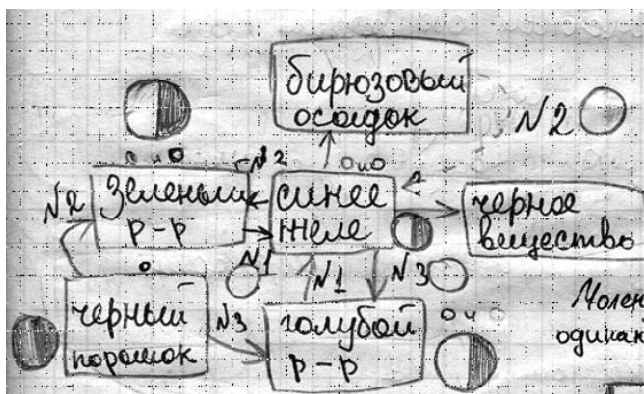 бирюзовый
осадок
N2
N2
N2
зеленый
р-р
синее
желе
черное
вещество
N1
N1
N3
черный
порошок
N3
голубой
р-р
о и о
о и о
о и о
одинак